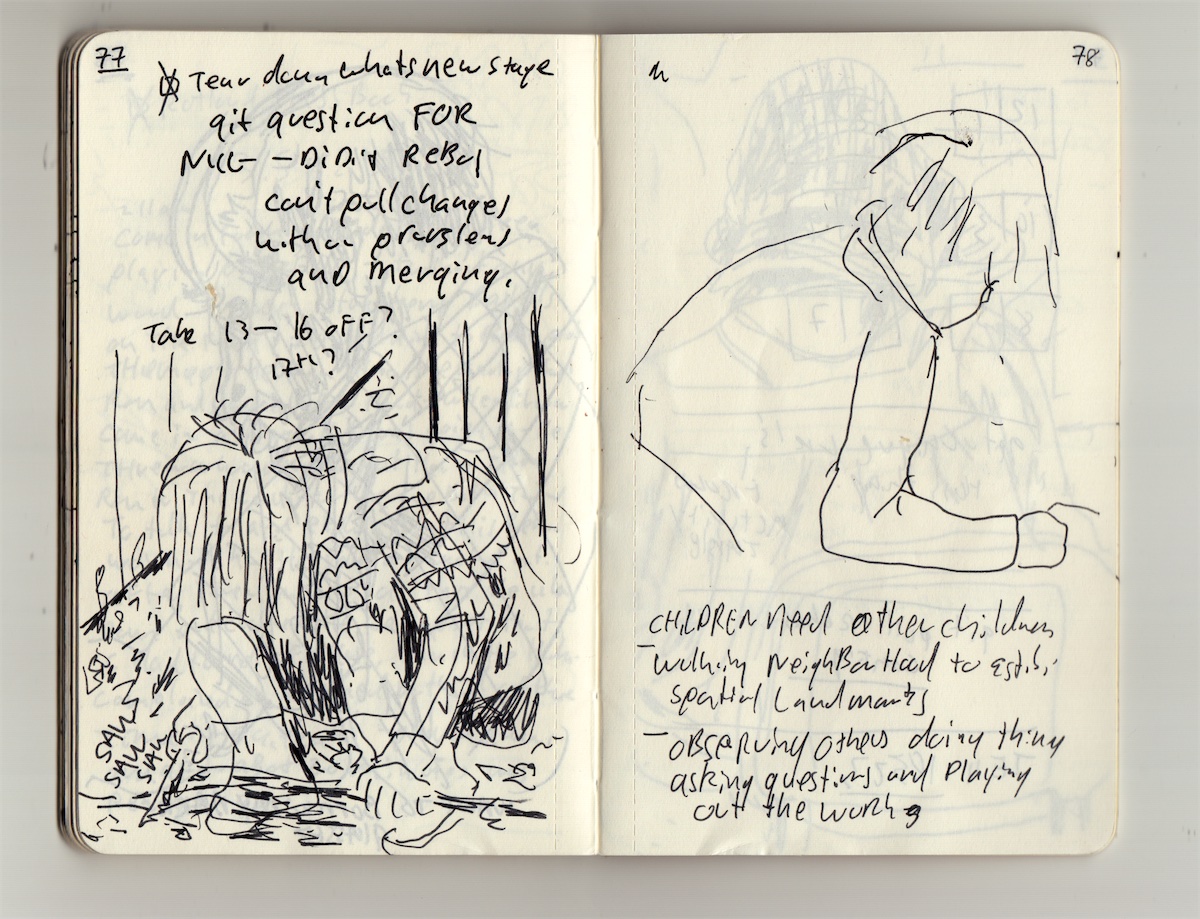 77
Tear down whats new stage
git question FOR
NICE - DiDi'd ReBas
can't pull changes
without problems
and merging.
Take 13 - 16 OFF?
17th?
SAW
SAW
SAW
78
CHILDREN Need other children
- walking NeighBorHood to
spatial Landmarks
- OBSERVING others doing thing
asking questions and Playing
out the work